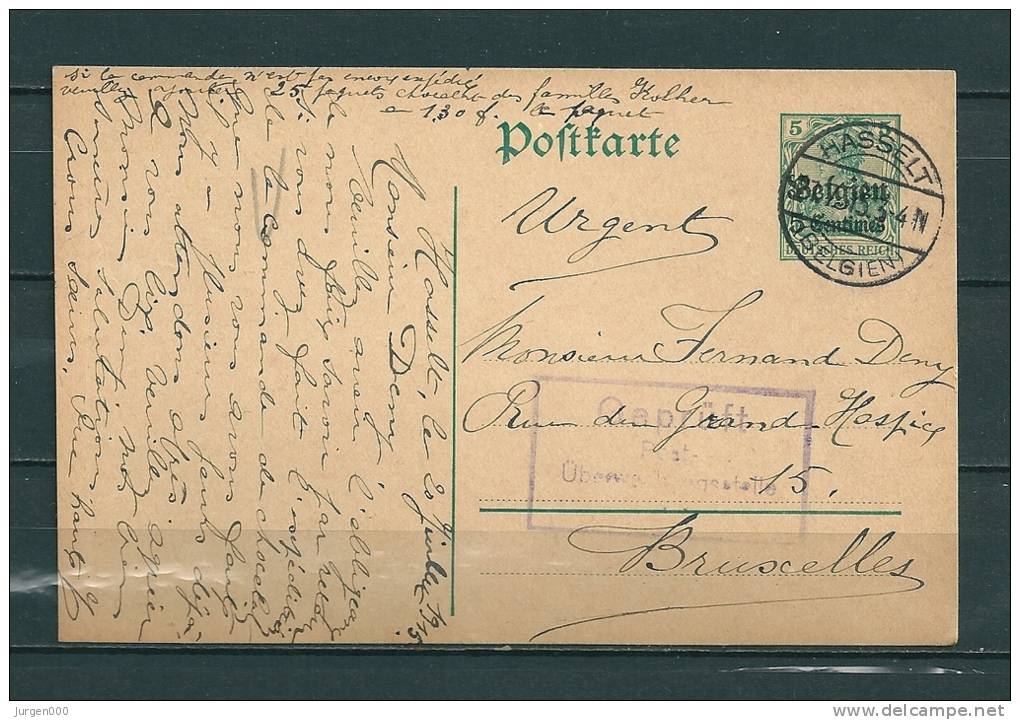 si la commande n'est pas encor expédié
veuillez ajouter 25 paquets chocolat des familles Kolher
a 1,30 f. le paquet
Postkarte
5
Belgien
5 Centimes
DEUTSCHES REICH
HASSELT
(BELGIEN)
Urgent
Monsieur Fernand Deny
Rue du Grand Hospice
15.
Bruxelles
Geprüft
Post-
Überwachungsstelle
Hasselt, le 20 Juillet 1915
Monsieur Deny
Veuillez avoir l'obligeance
de nous faire savoir par retour
si vous avez fait l'expédition
de la commande de chocolat
que nous vous avons fait
il y a plusieurs jours déjà
Nous attendons après
et vous prions veuillez agréer
Monsieur Deny nos bien
sincères salutations
Crous Soeurs. Rue haute
jurgen000
www.delcampe.net